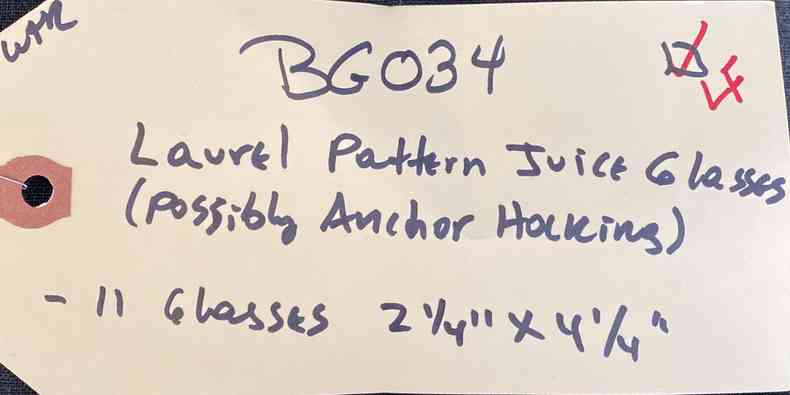 WAR
BG034
LF
Laurel Pattern Juice Glasses
(Possibly Anchor Hocking)
- 11 Glasses 2 1/4" x 4 1/4"